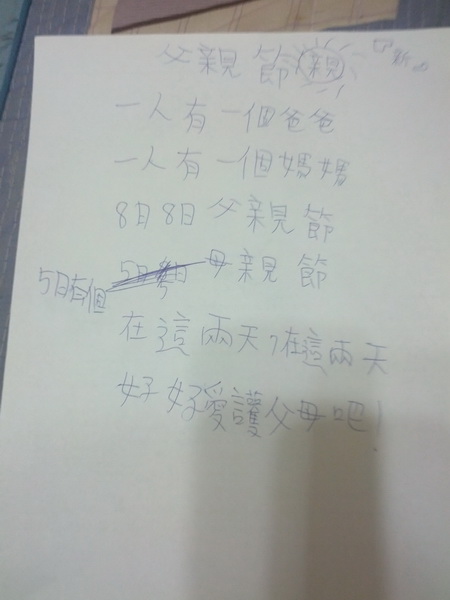 父親節親
一人有一個爸爸
一人有一個媽媽
8日8日父親節
5日有個母親節
在這兩天,在這兩天
好好愛護父母吧!